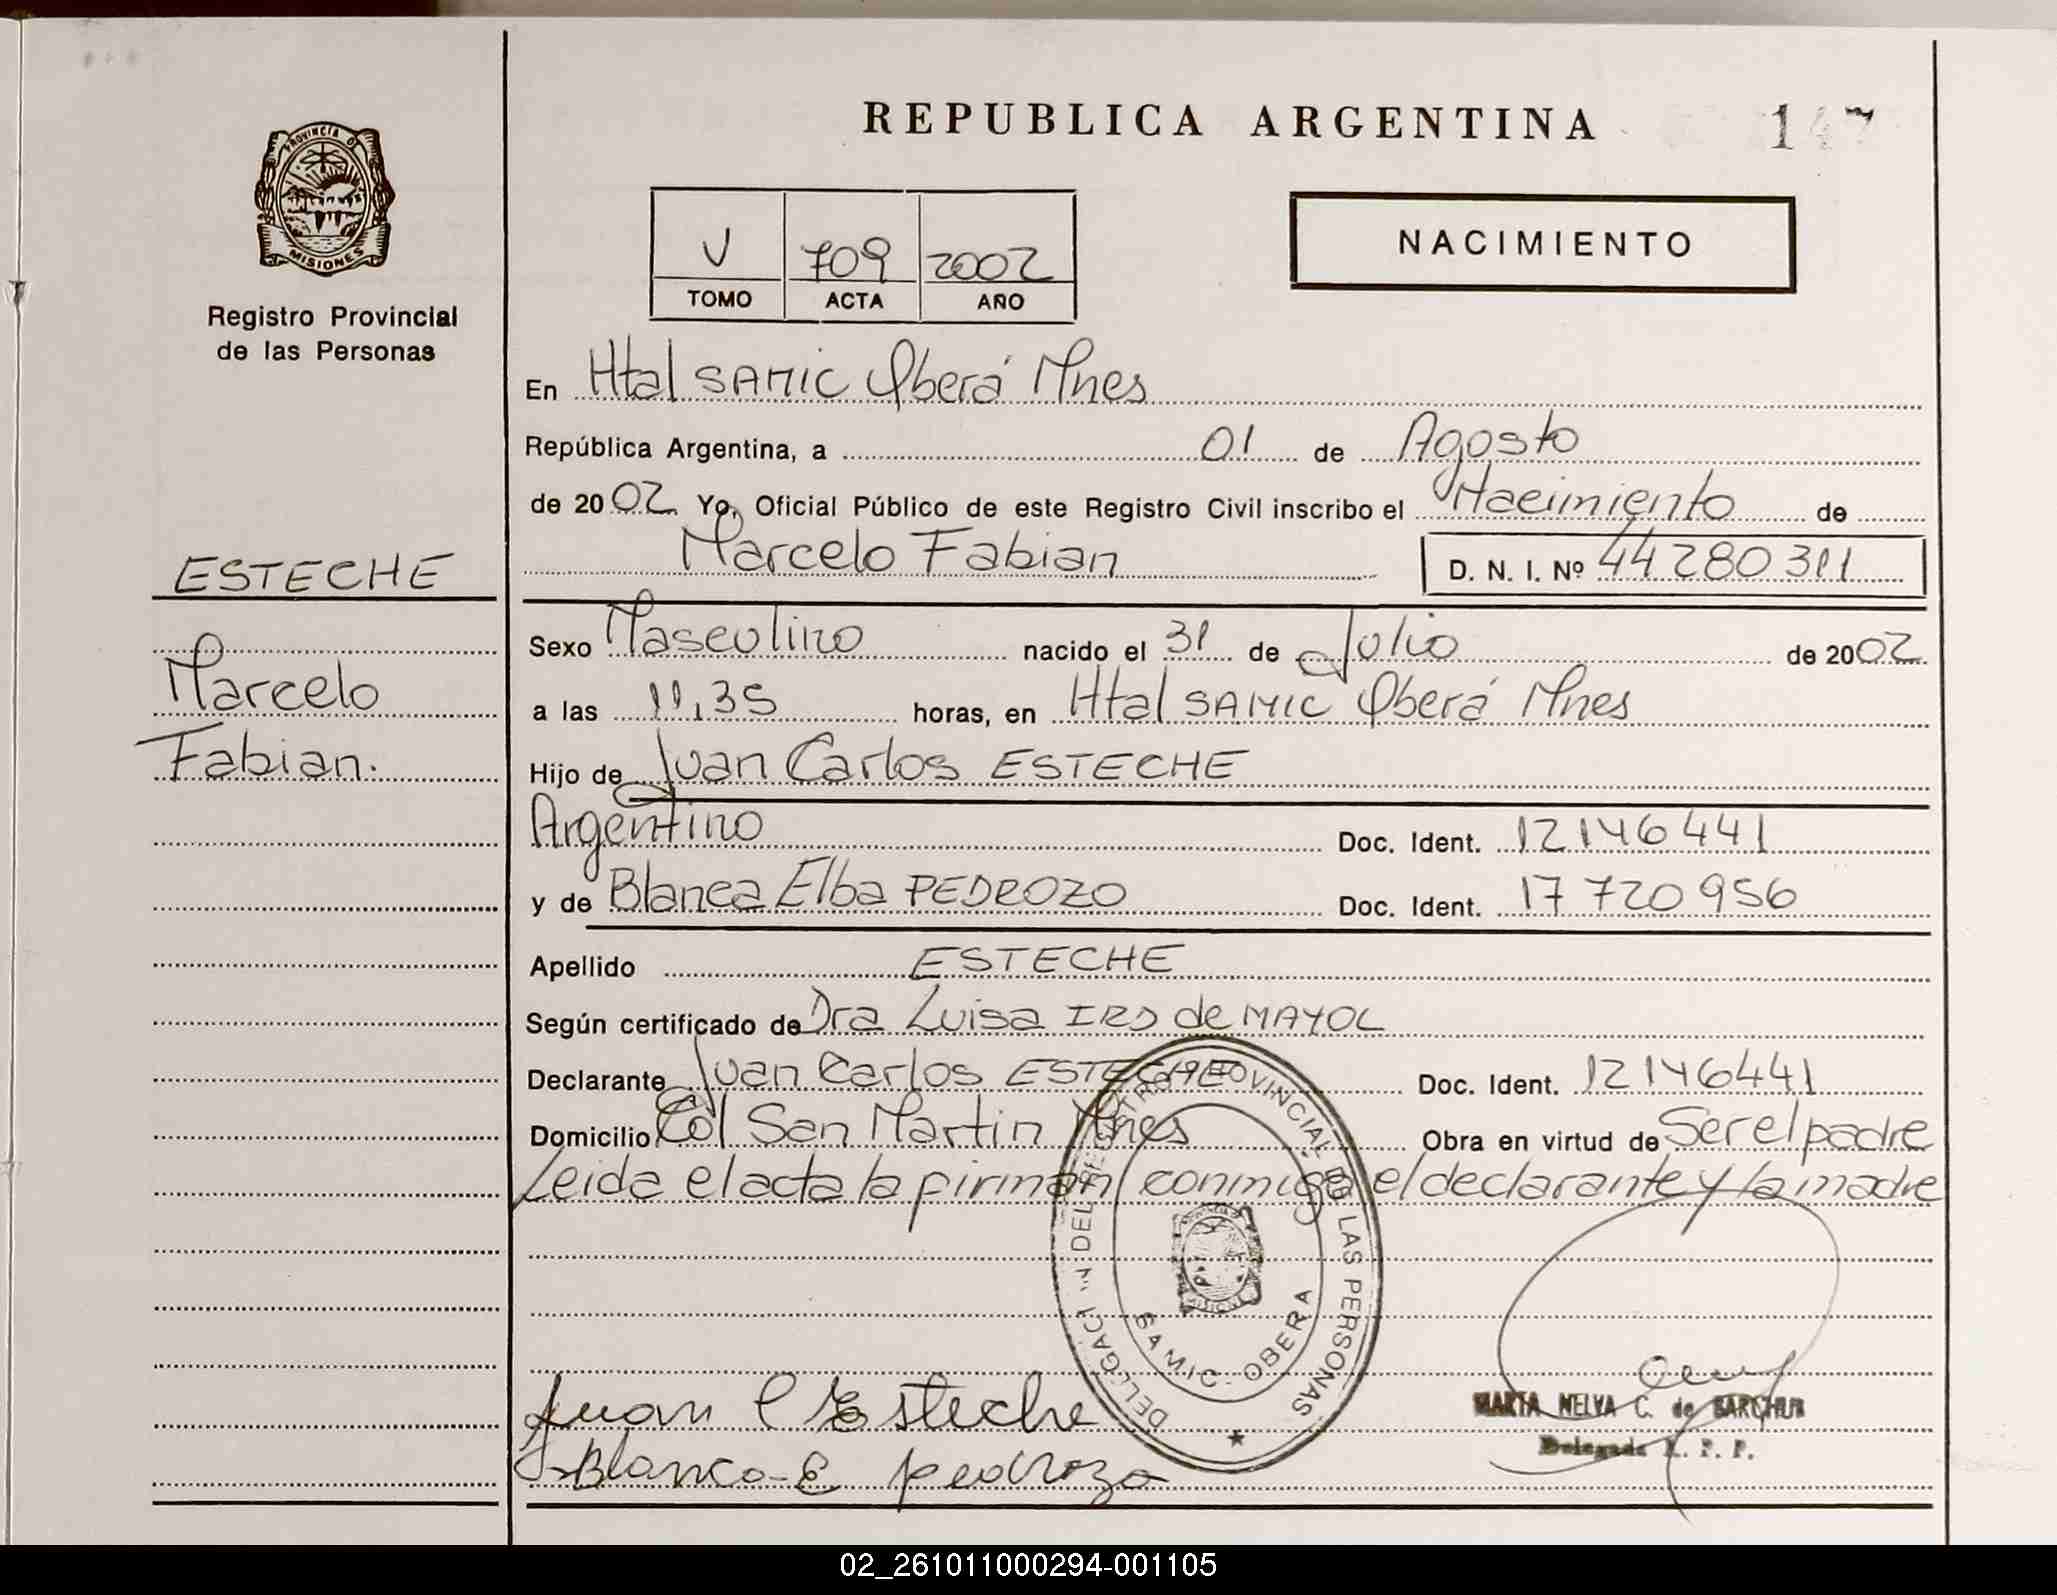 REPUBLICA ARGENTINA
PROVINCIA DE
MISIONES
Registro Provincial
de las Personas
V 709 2002
TOMO ACTA AÑO
NACIMIENTO
En Htal SAMIC Oberá Mnes
República Argentina, a 01 de Agosto
de 2002 Yo, Oficial Público de este Registro Civil inscribo el Nacimiento de
Marcelo Fabian D. N. I. Nº 44 280 311
ESTECHE
Marcelo
Fabian.
Sexo Masculino nacido el 31 de Julio de 2002
a las 11,35 horas, en Htal SAMIC Oberá Mnes
Hijo de Juan Carlos ESTECHE
Argentino Doc. Ident. 12146441
y de Blanca Elba PEDROZO Doc. Ident. 17 720 956
Apellido ESTECHE
Según certificado de Dra Luisa IRS de MAYOL
Declarante Juan Carlos ESTECHE Doc. Ident. 12146441
Domicilio Col San Martin Mnes Obra en virtud de Ser el padre
Leida el acta la firman conmigo el declarante y la madre
DELEGACION DEL REGISTRO PROVINCIAL DE LAS PERSONAS
SAMIC - OBERA
Juan C Esteche
Blanca E pedrozo
MARTA NELVA C. de
Delegada R. P. P.
02_261011000294-001105